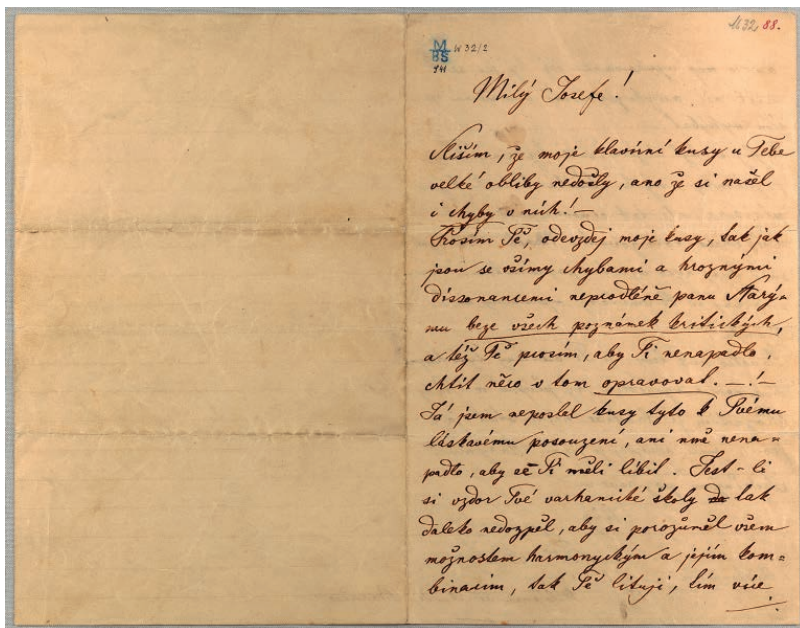 W 32, 88.
M
BS
941
W 32/2
Milý Josefe!
Slišim, že moje klavírní kusy u Tebe
velké obliby nedošly, ano že si našel
i chyby v nich! —
Prosím Tě, odevzdej moje kusy, tak jak
jsou se všímy chybami a hroznými
dissonancemi neprodléně panu Starý-
mu beze všech poznámek kritických,
a též Tě prosím, aby Ti nenapadlo,
chtít něco v tom opravovat. —!—
Já jsem neposlel kusy tyto k Tvému
láskavému posouzení, ani mně nena-
padlo, aby se Ti měli líbit. Jest-li
si vzdor Tvé varhanické školy tak
daleko nedospěl, aby si porozuměl všem
možnostem harmonyckým a jejím kom=
binacím, tak Tě lituji, tím více